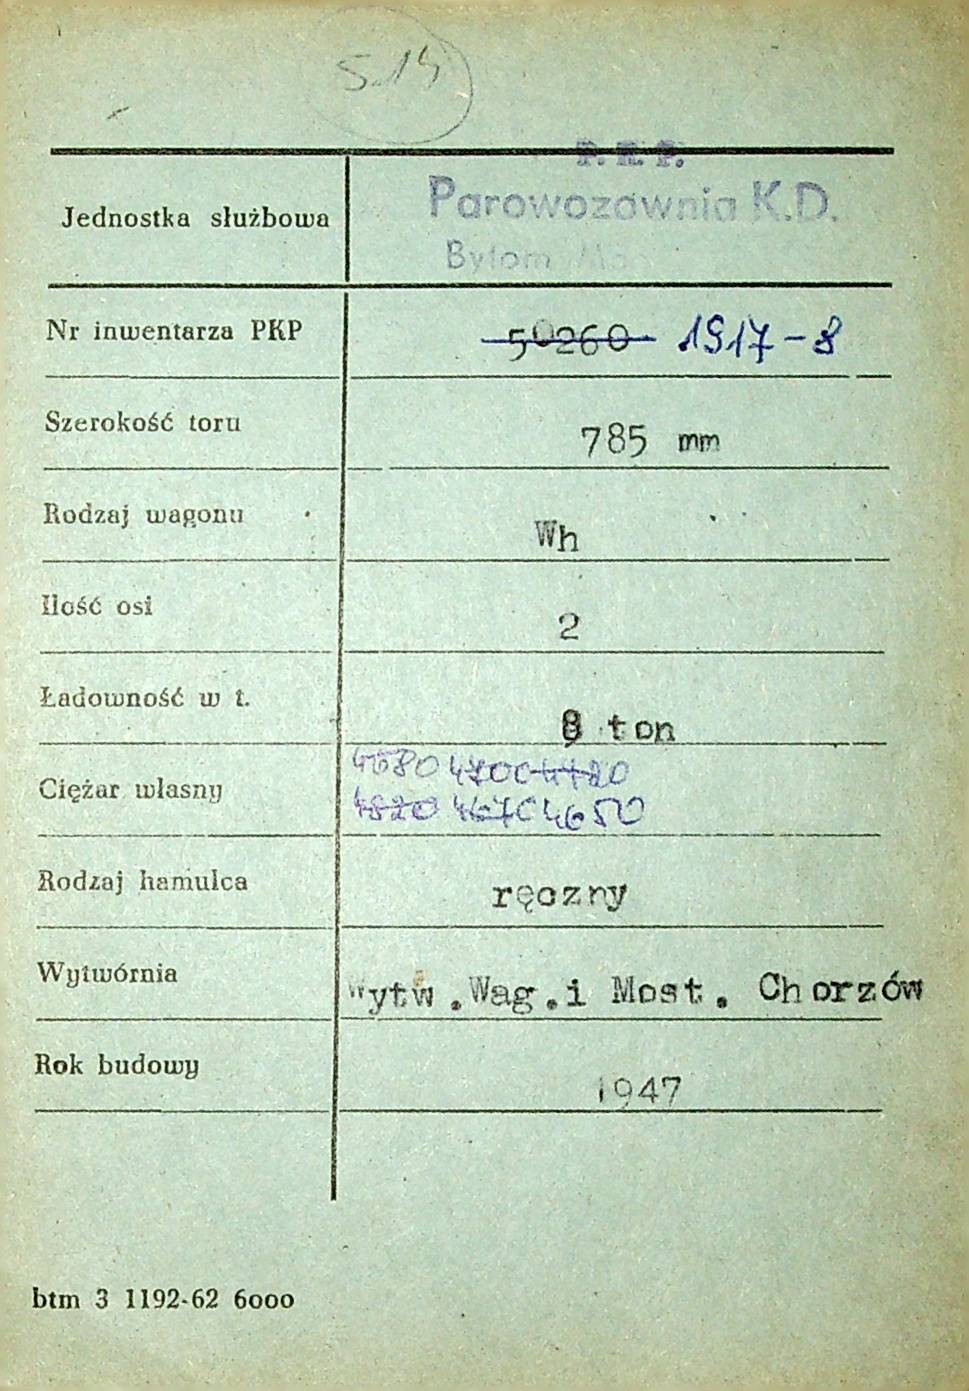 514
P. K. P.
Jednostka służbowa Parowozownia K.D.
Bytom
Nr inwentarza PKP 50260 1917-8
Szerokość toru 785 mm
Rodzaj wagonu Wh
Ilość osi 2
Ładowność w t. 8 ton
4680 4700 4720
Ciężar własny
4820 4670 4650
Rodzaj hamulca ręczny
Wytwórnia Wytw.Wag.i Most. Chorzów
Rok budowy 1947
btm 3 1192-62 6000